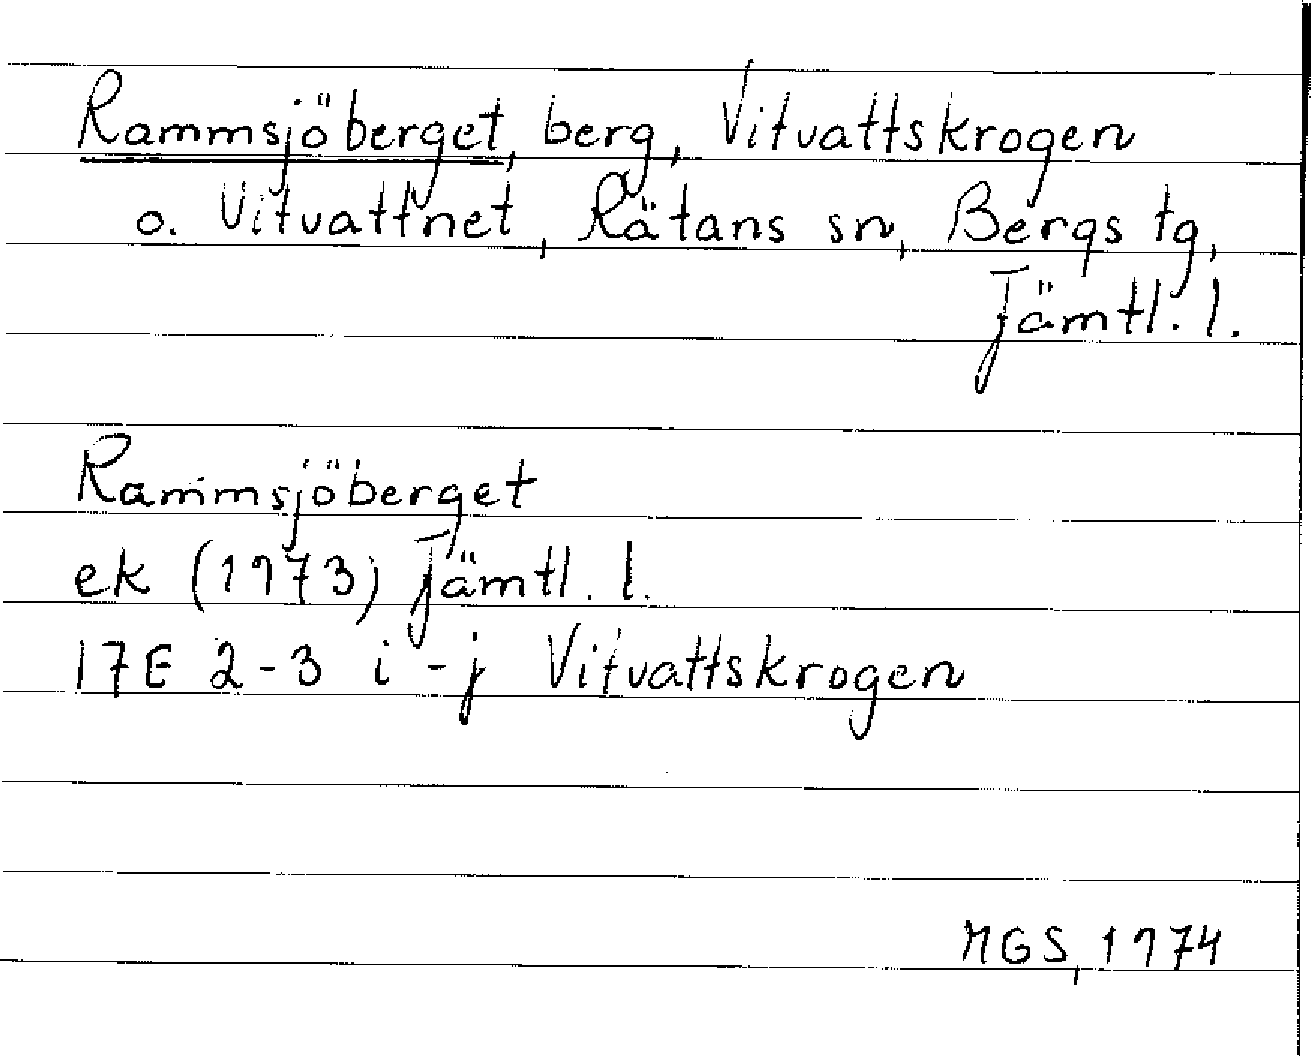 Rammsjöberget, berg, Vitvattskrogen
o. Vitvattnet, Rätans sn, Bergs tg,
Jämtl. l.
Rammsjöberget
ek (1973) Jämtl. l.
17E 2-3 i-j Vitvattskrogen
MGS, 1974